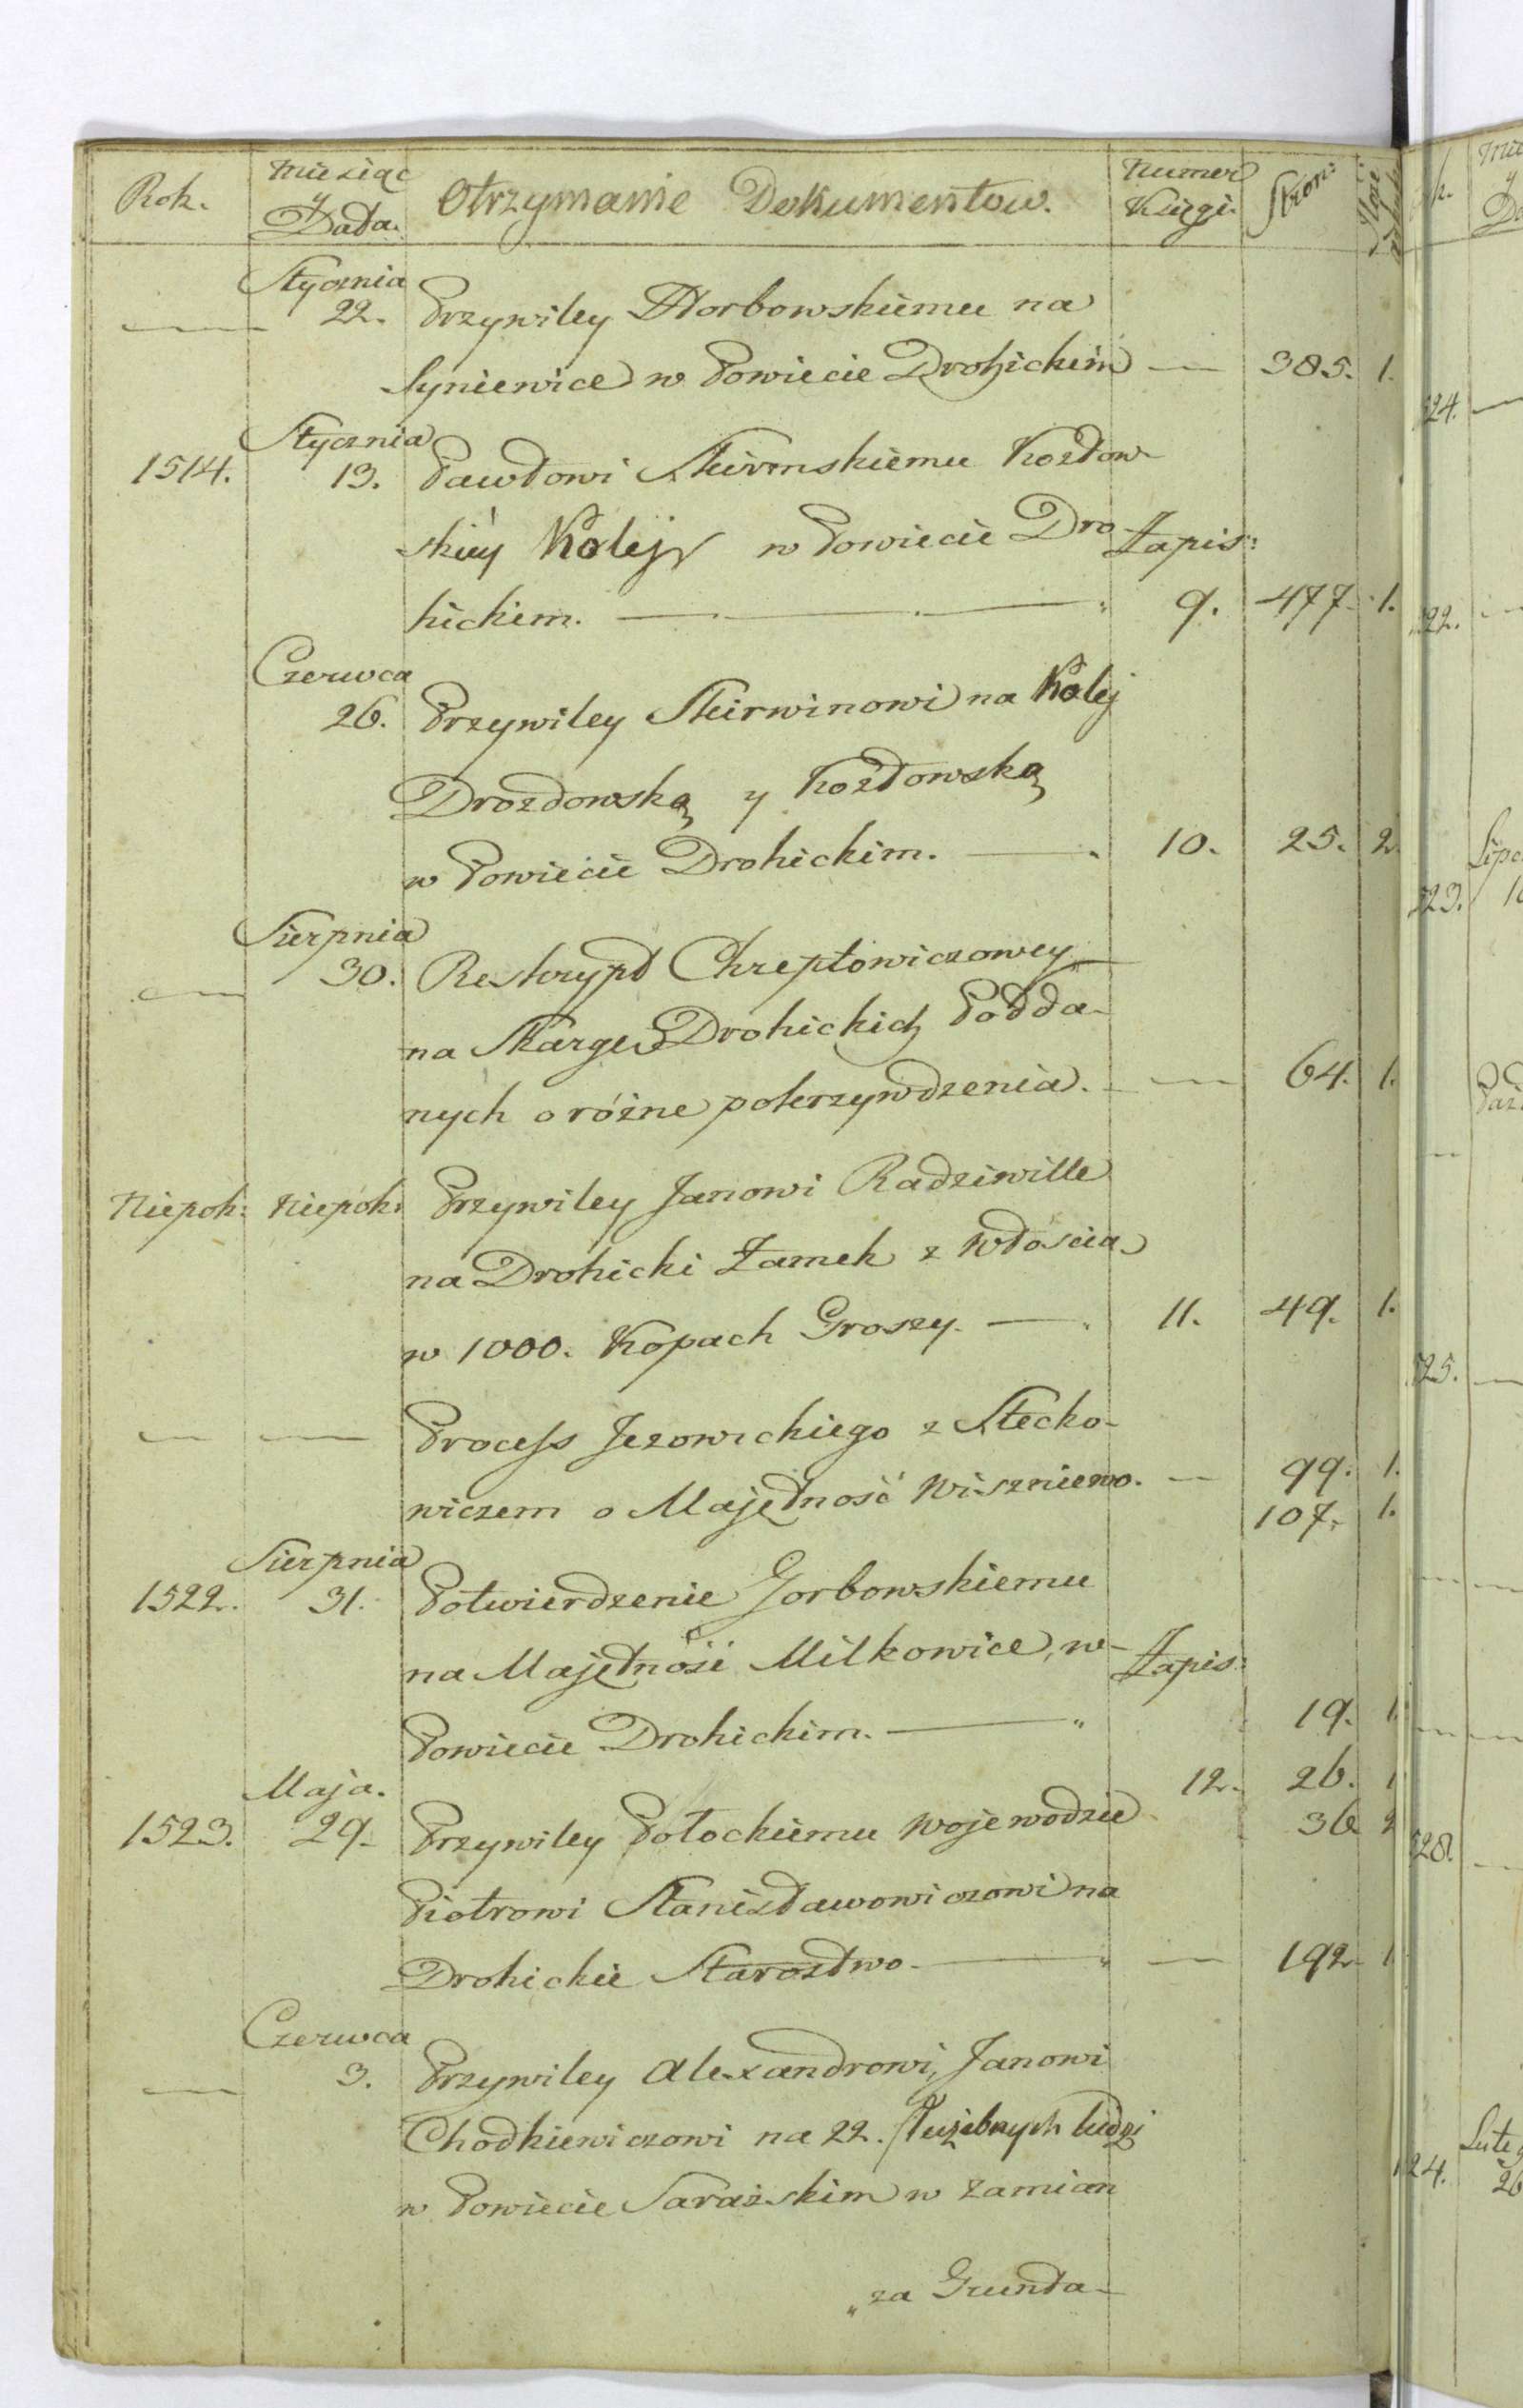 Rok. Miesiąc y Data. Otrzymanie Dokumentow. Numer Księgi. Stron:
Stycznia
22. Przywiley Horbowskiemu na
Syniewice w Powiecie Drohickim 385. 1.
Stycznia
1514. 13. Pawłowi Skirmskiemu Kozłow-
skiey Kolej w Powiecie Dro Zapis:
hickim. 9. 477. 1.
Czerwca
26. Przywiley Skirwinowi na Kolej
Drozdowską y Kozłowską
w Powiecie Drohickim. 10. 25. 2.
Sierpnia
30. Reskrypt Chreptowiczowey
na Skargę Drohickich Podda-
nych o różne pokrzywdzenia. 64. 1.
Niepok: Niepok: Przywiley Janowi Radziwille
na Drohicki Zamek z Włościa
w 1000. Kopach Groszy. 11. 49. 1.
Process Jezowickiego z Stecko-
wiczem o Majętność Wiszniewo. 99. 1.
107. 1.
Sierpnia
1522. 31. Potwierdzenie Gorbowskiemu
na Majętność Milkowice, w Zapis:
Powiecie Drohickim. 19. 1.
Maja. 12. 26. 1
1523. 29. Przywiley Połockiemu Wojewodzie 36 2
Piotrowi Stanisławowiczowi na
Drohickie Starostwo. 192. 1
Czerwca
3. Przywiley Alexandrowi, Janowi
Chodkiewiczowi na 22. Służebnych ludzi
w Powiecie Sarażskim w Zamian
„za Grunta-